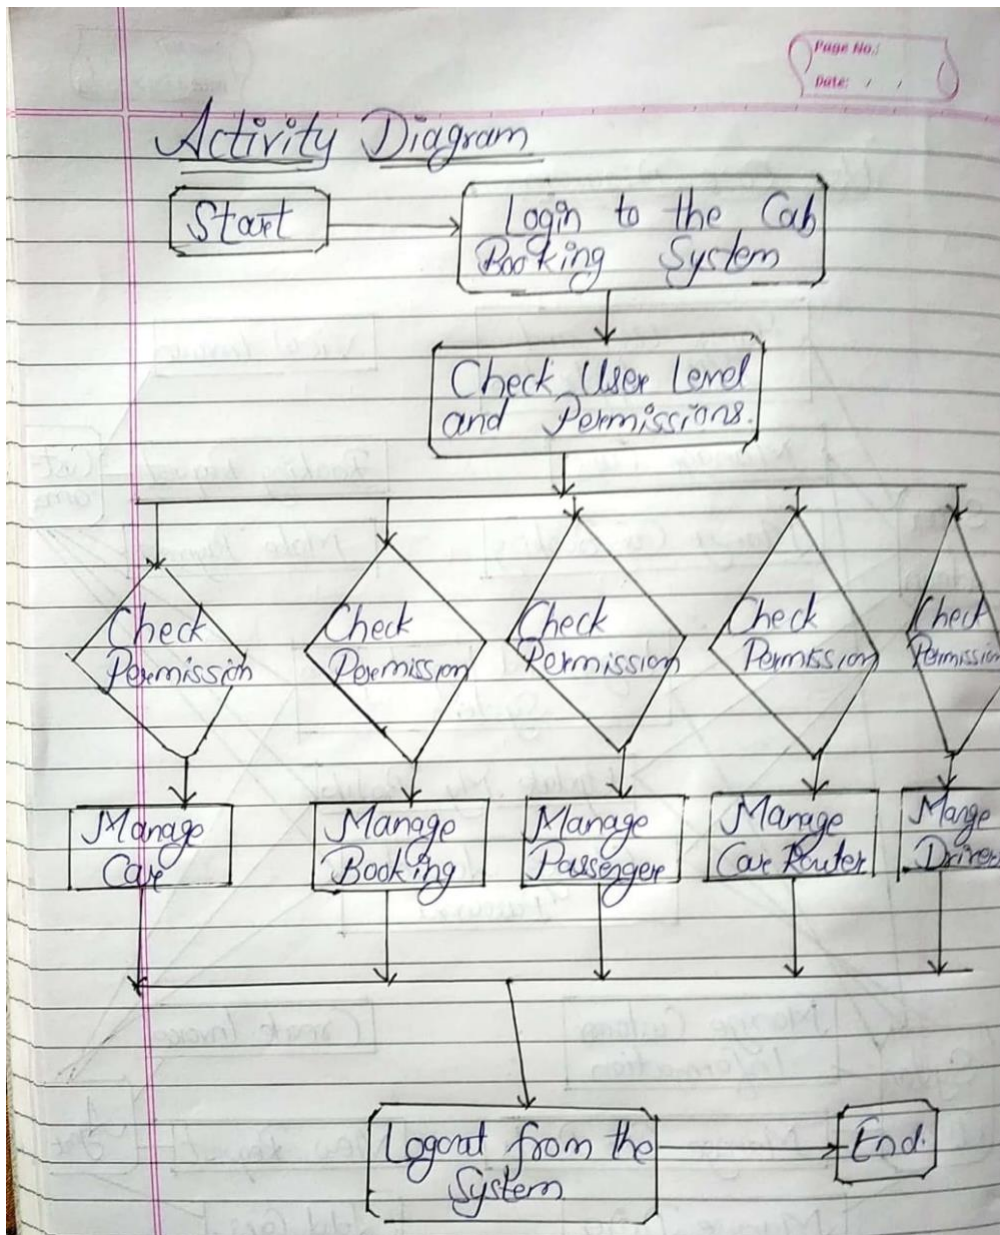 Page No.:
Date: / /
Activity Diagram
Start
Login to the Cab
Booking System
Check User Level
and Permissions.
Check
Permission
Check
Permission
Check
Permission
Check
Permission
Check
Permission
Manage
Car
Manage
Booking
Manage
Passenger
Manage
Car Router
Mange
Driver
Logout from the
System
End.